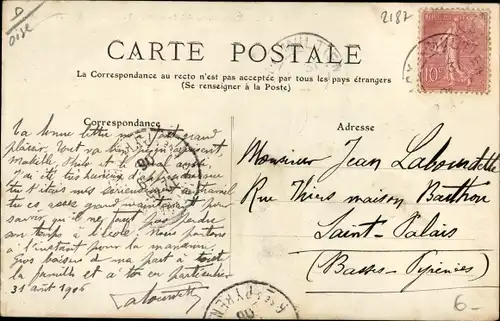 D
Oise
2187
CARTE POSTALE
La Correspondance au recto n'est pas acceptée par tous les pays étrangers
(Se renseigner à la Poste)
10
Correspondance
Adresse
Ta bonne lettre m'a fait grand
plaisir. Tout va bien
Mathilde,
J'ai été très heureux d'apprendre que
tu t'étais mis sérieusement au travail
tu es assez grand maintenant pour
savoir qu'il ne faut pas perdre
son temps à l'école. Nous partons
à l'instant pour la manœuvre.
Gros baisers de ma part à toute
la famille et à toi en particulier
31 août 1906
Monsieur Jean
Rue Thiers maison
Saint-Palais
(Basses-Pyrénées)
6-